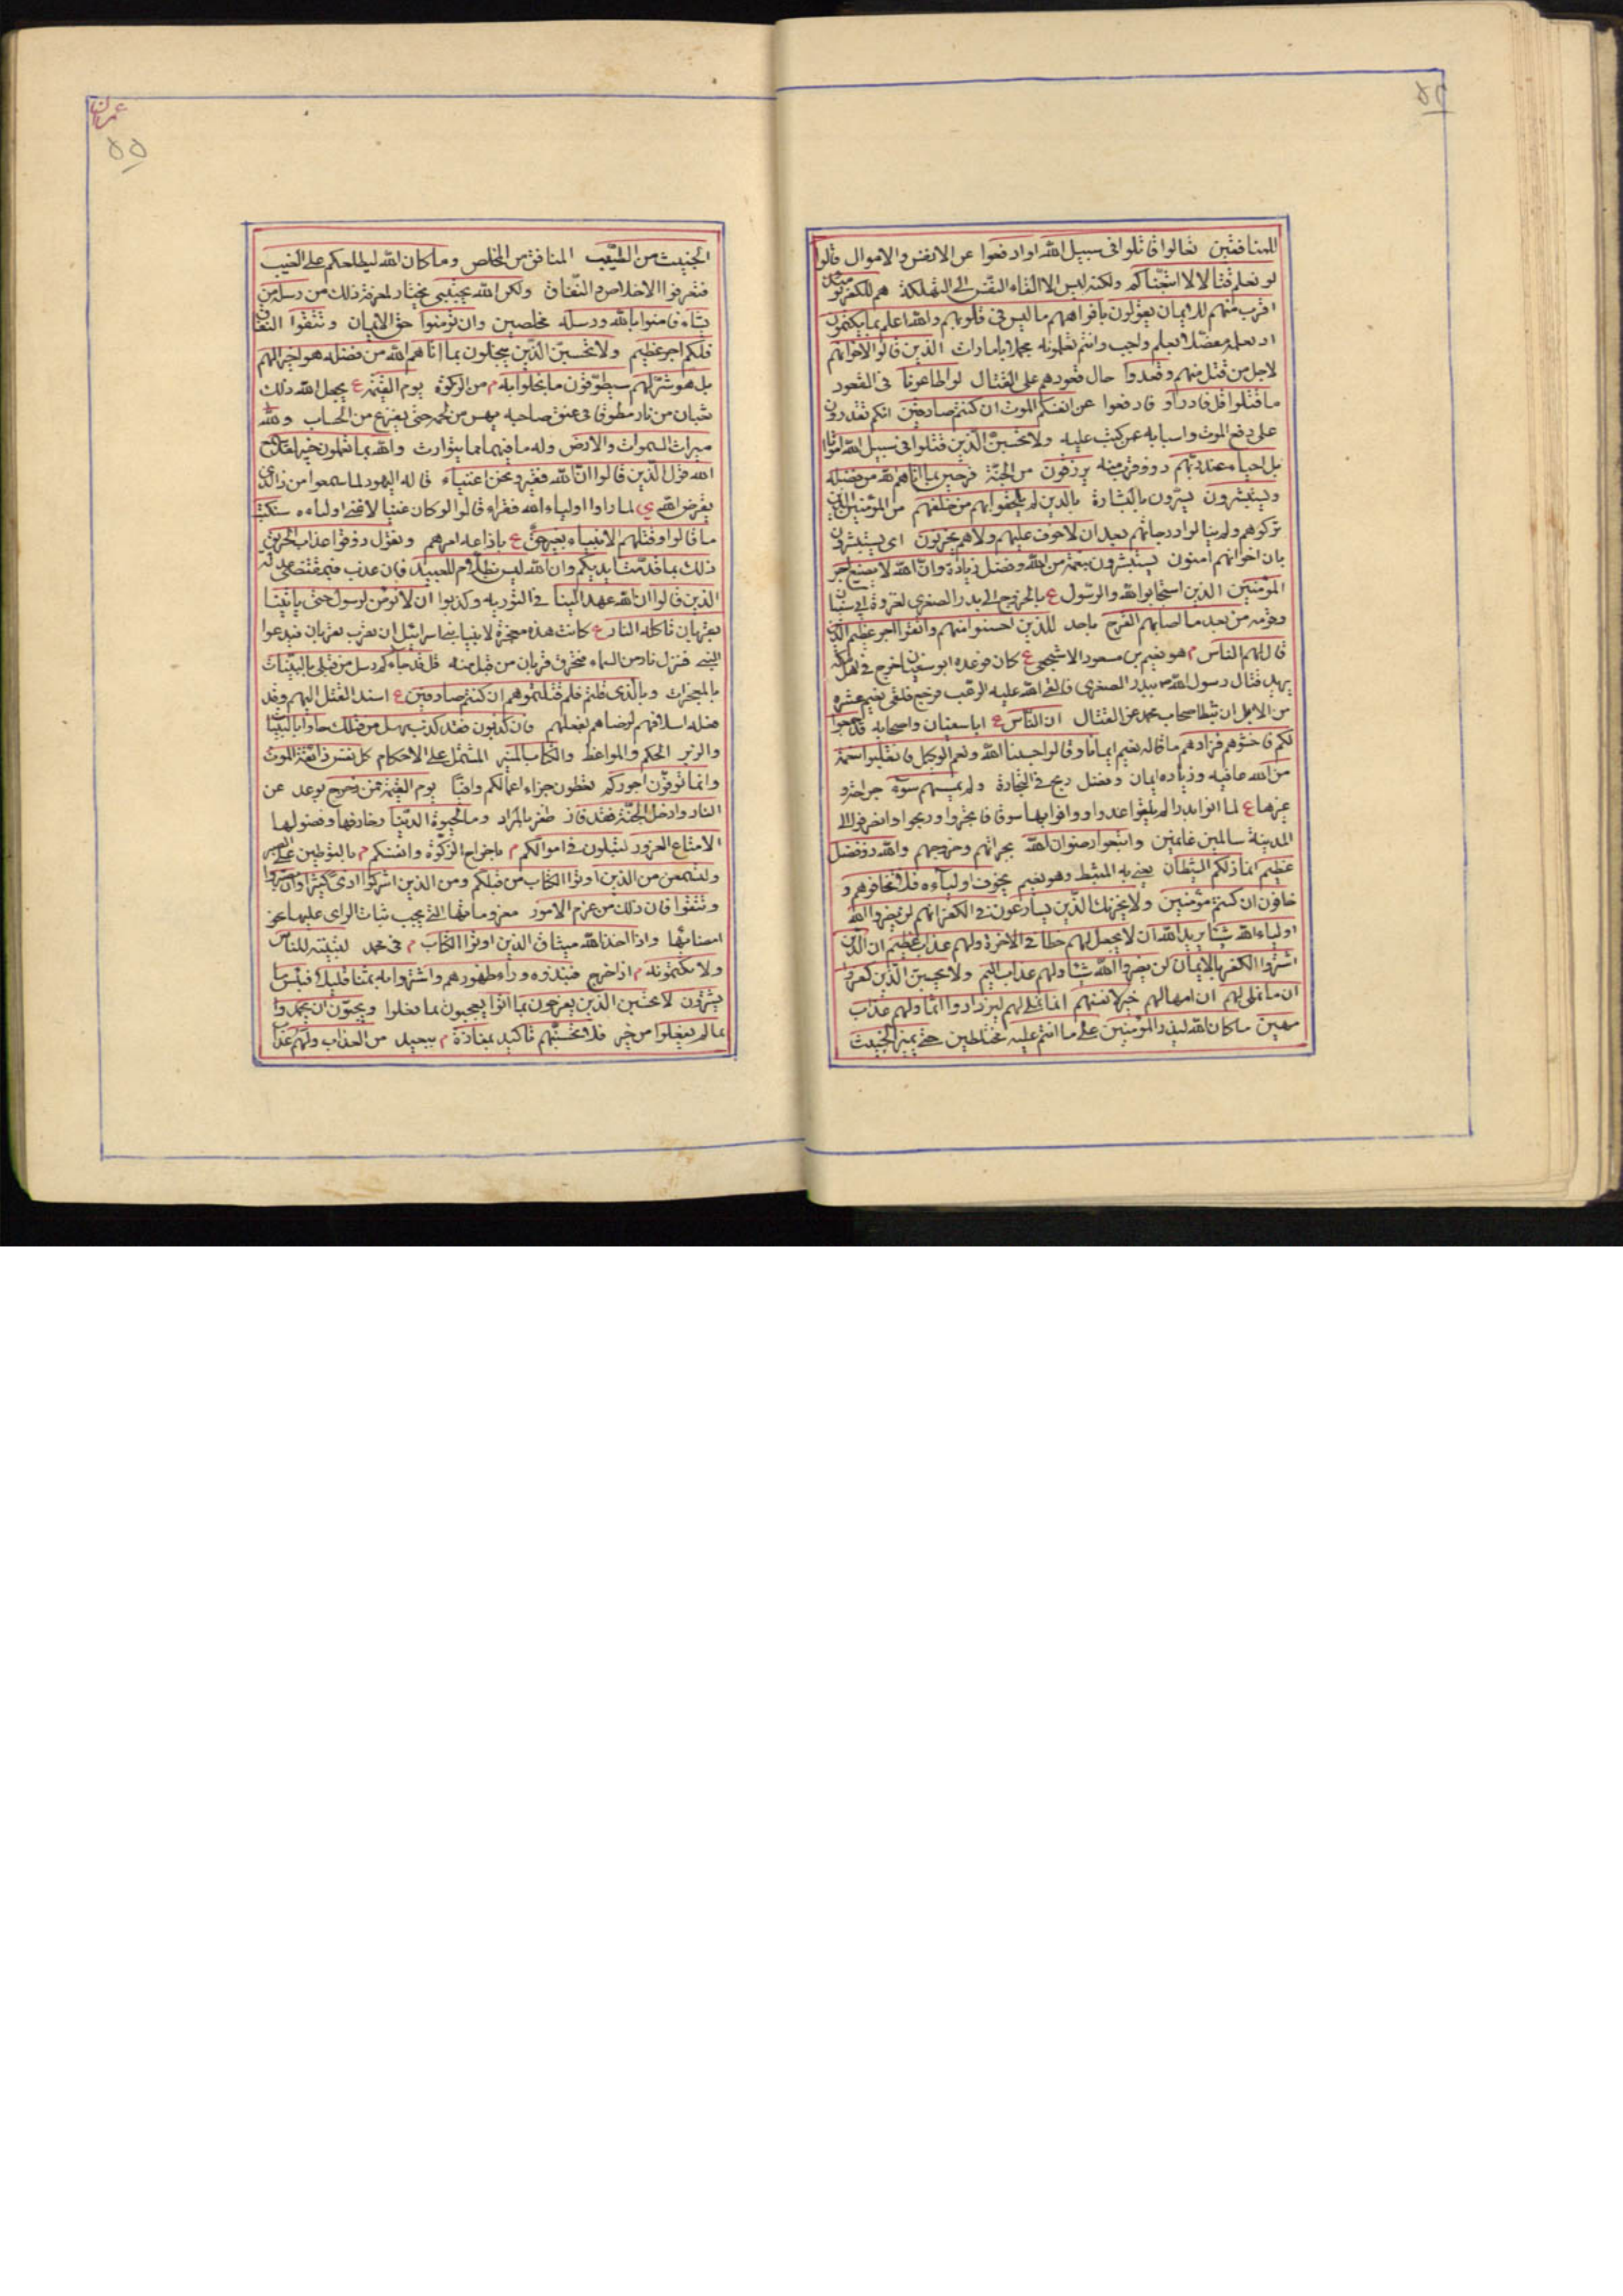 ٥٤
للمنافقين تعالوا قاتلوا في سبيل الله او ادفعوا عن الانفس والاموال قالوا
لو نعلم قتالا لاتبعناكم ولكنه ليس الا القاء النفس الى التهلكة هم للكفر يومئذ
اقرب منهم للايمان يقولون بافواههم ما ليس في قلوبهم والله اعلم بما يكتمون
اذ يعلمه مفصلا بعلم واجب وانتم تعلمونه مجملا بامارات الذين قالوا لاخوانهم
لاجل من قتل منهم وقعدوا حال قعودهم على القتال لو اطاعونا في القعود
ما قتلوا قل فادراو فادفعوا عن انفسكم الموت ان كنتم صادقين انكم تقدرون
على دفع الموت واسبابه عمن كتب عليه ولا تحسبن الذين قتلوا في سبيل الله امواتا
بل احياء عند ربهم ذووا قرب منه يرزقون من الجنة فرحين بما اتاهم الله من فضله
ويستبشرون يسرون بالبشارة بالذين لم يلحقوا بهم من خلفهم من المؤمنين الذين
تركوهم ولم ينالوا درجاتهم بعد ان لا خوف عليهم ولا هم يحزنون اى يستبشرون
بان اخوانهم امنون يستبشرون بنعمة من الله وفضل زيادة وان الله لا يضيع اجر
المؤمنين الذين استجابوا لله والرسول ع بالخروج الى بدر الصغرى لغزوة ابي سفيان
وقومه من بعد ما اصابهم القرح باحد للذين احسنوا منهم واتقوا اجر عظيم الذين
قال لهم الناس م هو نعيم بن مسعود الاشجعي ع كان موعده ابو سفيان خرج في اهل مكة
يريد قتال رسول الله ص ببدر الصغرى فالقى الله عليه الرعب فرجع فلقى نعيم عشره
من الابل ان ثبط اصحاب محمد عن القتال ان الناس ع ابا سفيان واصحابه قد جمعوا
لكم فاخشوهم فزادهم ما قاله نعيم ايمانا وقالوا حسبنا الله ونعم الوكيل فانقلبوا بنعمة
من الله عافيه وزيادة ايمان وفضل ربح في التجارة ولم يمسسهم سوء جراحة و
غيرها ع لما اتوا بدرا لم يلقوا عدوا ووافوا بها سوقا فاتجروا وربحوا وانصرفوا الى
المدينة سالمين غانمين واتبعوا رضوان الله بجراتهم وخروجهم والله ذو فضل
عظيم انما ذلكم الشيطان يعني به المثبط وهو نعيم يخوف اولياءه فلا تخافوهم و
خافون ان كنتم مؤمنين ولا يحزنك الذين يسارعون في الكفر انهم لن يضروا الله
اولياء الله شيئا يريد الله ان لا يجعل لهم حظا في الاخرة ولهم عذاب عظيم ان الذين
اشتروا الكفر بالايمان لن يضروا الله شيئا ولهم عذاب اليم ولا يحسبن الذين كفروا
ان ما نملي لهم ان امهالهم خير لانفسهم انما نملي لهم ليزدادوا اثما ولهم عذاب
مهين ما كان الله ليذر المؤمنين على ما انتم عليه مختلطين حتى يميز الخبيث
عمران
٥٥
الخبيث من الطيب المنافق من المخلص وما كان الله ليطلعكم على الغيب
فتعرفوا الاخلاص والنفاق ولكن الله يجتبي يختار لمعرفة ذلك من رسله من
يشاء فامنوا بالله ورسله مخلصين وان تؤمنوا حق الايمان وتتقوا النفاق
فلكم اجر عظيم ولا تحسبن الذين يبخلون بما اتاهم الله من فضله هو خيرا لهم
بل هو شر لهم سيطوقون ما بخلوا به م من الزكوة يوم القيمة ع يجعل الله ذلك
ثعبان من نار مطوقا في عنق صاحبه ينهس من لحمه حتى يفرغ من الحساب ولله
ميراث السموات والارض وله ما فيهما مما يتوارث والله بما تعملون خبير لقد سمع
الله قول الذين قالوا ان الله فقير ونحن اغنياء قاله اليهود لما سمعوا من ذا الذى
يقرض الله ي لما راوا اولياء الله فقراء قالوا لو كان غنيا لاغنى اولياءه سنكتب
ما قالوا وقتلهم الانبياء بغير حق ع باذاعه امرهم ونقول ذوقوا عذاب الحريق
ذلك بما قدمت ايديكم وان الله ليس بظلام للعبيد فان عذب فبمقتضى عدله
الذين قالوا ان الله عهد الينا في التوريه وكذبوا ان لا نؤمن لرسول حتى ياتينا
بقربان تاكله النار ع كانت هذه معجزة لانبياء بنى اسرائيل ان يقرب بقربان فيدعوا
النبي فتنزل نار من السماء فتحرق قربان من قبل منه قل قد جاءكم رسل من قبلي بالبينات
بالمعجزات وبالذى قلتم فلم قتلتموهم ان كنتم صادقين ع اسند القتل اليهم وقد
فعله اسلافهم لرضاهم بفعلهم فان كذبوك فقد كذب رسل من قبلك جاوا بالبينات
والزبر الحكم والمواعظ والكتاب المنير المشتمل على الاحكام كل نفس ذائقة الموت
وانما توفون اجوركم تعطون جزاء اعمالكم وافيا يوم القيمة فمن زحزح بوعد عن
النار وادخل الجنة فقد فاز ظفر بالمراد وما الحيوة الدنيا زخارفها وفضولها
الا متاع الغرور لتبلون في اموالكم م باخراج الزكوة وانفسكم م بالتوطين على الصبر
ولتسمعن من الذين اوتوا الكتاب من قبلكم ومن الذين اشركوا اذى كثيرا وان تصبروا
وتتقوا فان ذلك من عزم الامور معزوماتها التي يجب ثبات الراى عليها نحو
امضائها واذ اخذ الله ميثاق الذين اوتوا الكتاب م في محمد لتبيننه للناس
ولا تكتمونه م اذا خرج فنبذوه وراء ظهورهم واشتروا به ثمنا قليلا فبئس ما
يشترون لا تحسبن الذين يفرحون بما اتوا يعجبون بما فعلوا ويحبون ان يحمدوا
بما لم يفعلوا من خير فلا تحسبنهم تاكيد بمفازة م ببعيد من العذاب ولهم عذاب